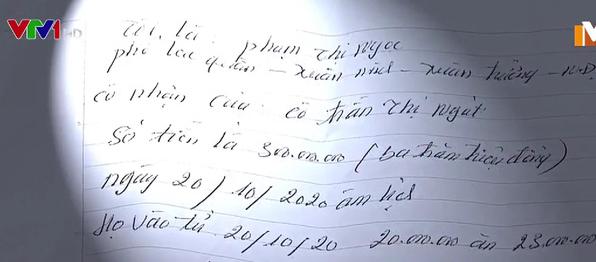 VTV1 HD
Tôi là phạm thị ngọc
phố lạc quần - xuân ninh - xuân trường - N.Đ
có nhận của cô trần thị ngát
số tiền là 300.000.000 (ba trăm triệu đồng)
ngày 20/10/2020 âm lịch
Họ vào từ 20/10/20 20.000.000 ăn 23.000.000